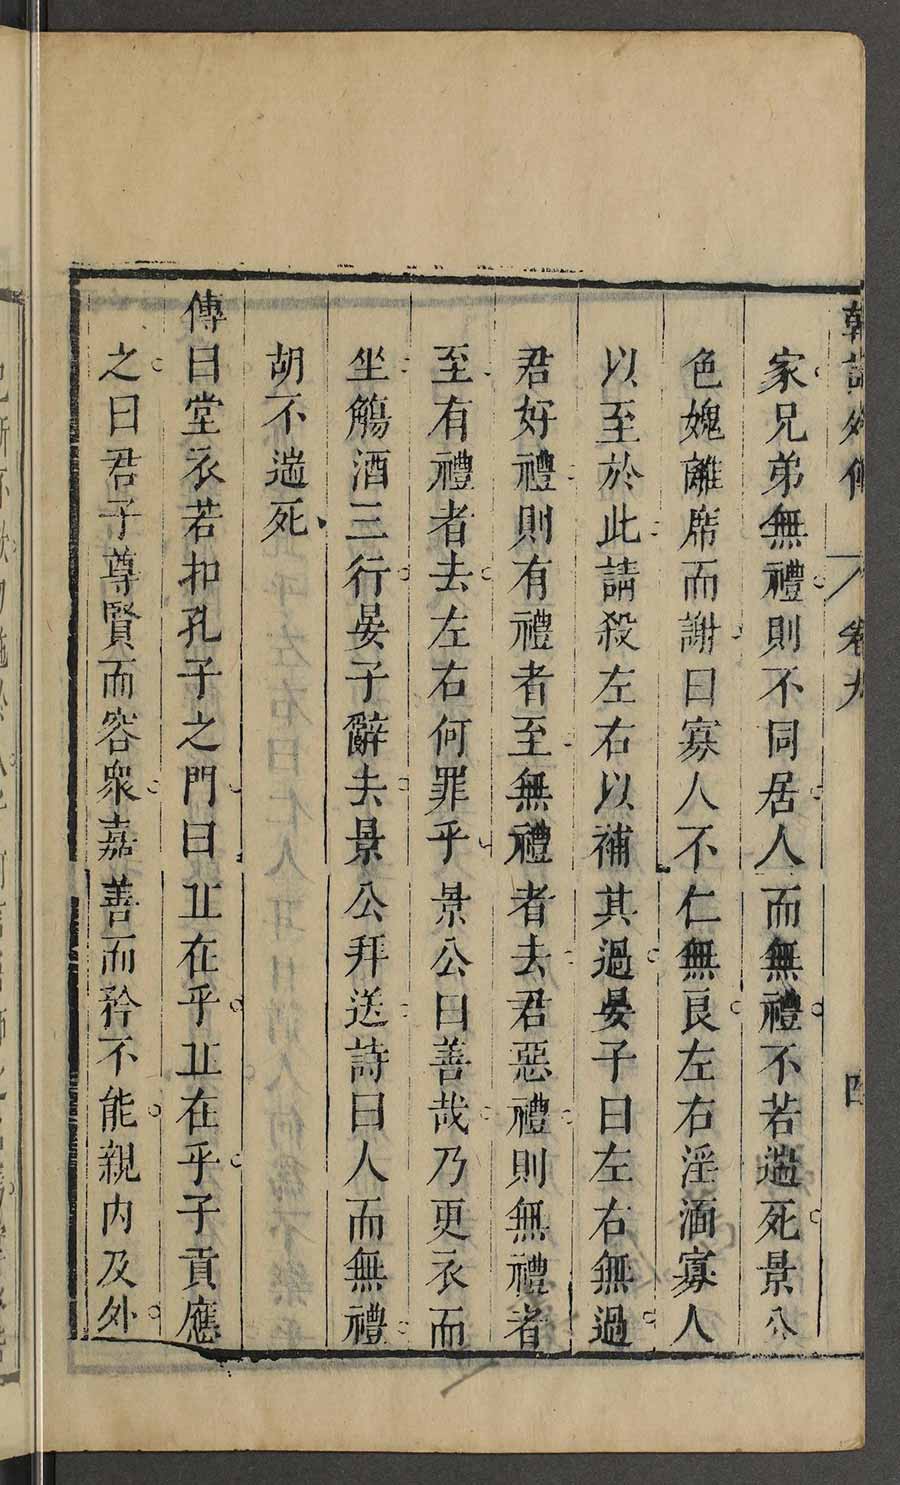 韓詩外傳 卷九 四
家兄弟無禮則不同居人而無禮不若遄死景公
色媿離席而謝曰寡人不仁無良左右淫湎寡人
以至於此請殺左右以補其過晏子曰左右無過
君好禮則有禮者至無禮者去君惡禮則無禮者
至有禮者去左右何罪乎景公曰善哉乃更衣而
坐觴酒三行晏子辭去景公拜送詩曰人而無禮
胡不遄死
傳曰堂衣若扣孔子之門曰丘在乎丘在乎子貢應
之曰君子尊賢而容衆嘉善而矜不能親內及外